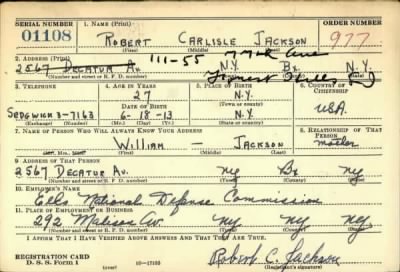 SERIAL NUMBER 1. NAME (Print) ORDER NUMBER
01108 ROBERT CARLISLE JACKSON 977
(First) (Middle) (Last)
2. ADDRESS (Print) 111-55 77th Ave
2567 DECATUR Av. N.Y. Bx N.Y.
Forest Hills
(Number and street or R. F. D. number) (Town) (County) (State)
3. TELEPHONE 4. AGE IN YEARS 5. PLACE OF BIRTH 6. COUNTRY OF CITIZENSHIP
27 N.Y.
DATE OF BIRTH (Town or county) USA.
SEDGWICK 3-7163 6-18-13 N.Y.
(Exchange) (Number) (Mo.) (Day) (Yr.) (State or country)
7. NAME OF PERSON WHO WILL ALWAYS KNOW YOUR ADDRESS 8. RELATIONSHIP OF THAT PERSON
WILLIAM — JACKSON mother
(Mr., Mrs., Miss) (First) (Middle) (Last)
9. ADDRESS OF THAT PERSON
2567 DECATUR Av. NY Bx NY
(Number and street or R. F. D. number) (Town) (County) (State)
10. EMPLOYER'S NAME
National Defense Commission
11. PLACE OF EMPLOYMENT OR BUSINESS
292 Madison Av. NY NY NY
(Number and street or R. F. D. number) (Town) (County) (State)
I AFFIRM THAT I HAVE VERIFIED ABOVE ANSWERS AND THAT THEY ARE TRUE.
REGISTRATION CARD
D. S. S. Form 1 (over) 16—17105 Robert C. Jackson
(Registrant's signature)